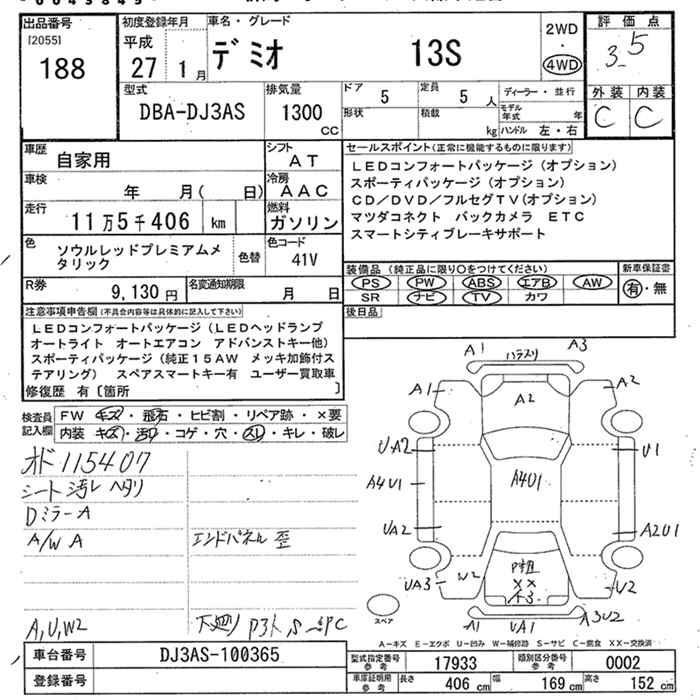 出品番号
[2055]
188
初度登録年月
平成
27 1月
車名・グレード
デミオ 13S
2WD
・
4WD
評価点
3.5
外装 内装
C C
型式
DBA-DJ3AS
排気量
1300
cc
ドア 5
定員 5人
ディーラー・並行
形状
積載 kg
モデル年式 年
ハンドル 左・右
車歴
自家用
シフト
AT
車検
年 月( 日)
冷房
AAC
走行
11万5千406 km
燃料
ガソリン
色
ソウルレッドプレミアムメ
タリック
色替
色コード
41V
R券
9,130円
名変通知期限
月 日
セールスポイント(正常に機能するものに限ります)
LEDコンフォートパッケージ(オプション)
スポーティパッケージ(オプション)
CD/DVD/フルセグTV(オプション)
マツダコネクト バックカメラ ETC
スマートシティブレーキサポート
装備品(純正品に限り○をつけてください)
PS PW ABS エアB AW
SR ナビ TV カワ
新車保証書
有・無
後日品
注意事項申告欄(不具合内容等は具体的に記入して下さい)
LEDコンフォートパッケージ(LEDヘッドランプ
オートライト オートエアコン アドバンストキー他)
スポーティパッケージ(純正15AW メッキ加飾付ス
テアリング) スペアスマートキー有 ユーザー買取車
修復歴 有〔箇所 〕
検査員
記入欄
FW キズ・飛石・ヒビ割・リペア跡・×要
内装 キズ・汚れ・コゲ・穴・スレ・キレ・破レ
オド115407
シート汚レ ヘタリ
DミラーA
A/W A
エンドパネル 歪
A,U,W2
下廻り P3ト,S
A1
ハラスリ
A3
A1
A2
A2
UA2
U1
A4U1
A4U1
UA2
A2U1
UA3
W2
P粗
XX
U2
A1
UA1
A3U2
スペア
A-キズ E-エクボ U-凹み W-補修跡 S-サビ C-腐食 XX-交換済
車台番号
DJ3AS-100365
登録番号
型式指定番号
参考
17933
類別区分番号
参考
0002
車庫証明用
参考
長さ 406 cm
幅 169 cm
高さ 152 cm